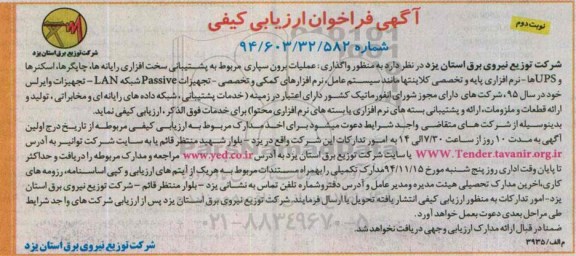 آگهی فراخوان ارزیابی کیفی
نوبت دوم
شماره ۹۴/۶۰۳/۳۲/۵۸۲
شرکت توزیع برق استان یزد
شرکت توزیع نیروی برق استان یزد در نظر دارد به منظور واگذاری : عملیات برون سپاری مربوط به پشتیبانی سخت افزاری رایانه ها، چاپگرها، اسکنرها
و UPSها - نرم افزاری پایه و تخصصی کلاینتها مانند سیستم عامل، نرم افزارهای کمکی و تخصصی - تجهیزات Passive شبکه LAN - تجهیزات وایرلس
خود در سال ۹۵، شرکت های دارای مجوز شورای انفورماتیک کشور دارای اعتبار در زمینه (خدمات پشتیبانی ، شبکه داده های رایانه ای و مخابراتی ، تولید و
ارائه قطعات و ملزومات، ارائه و پشتیبانی بسته های نرم افزاری یا بسته های نرم افزاری محتوا) برای خدمات فوق الذکر ، ارزیابی کیفی نماید.
بدینوسیله از شرکت های متقاضی واجد شرایط دعوت میشود برای اخذ مدارک مربوط به ارزیابی کیفی مربوطه از تاریخ درج اولین
آگهی به مدت ۱۰ روز از ساعت ۷/۳۰ الی ۱۴ به امور تدارکات این شرکت واقع در یزد - بلوار شهید منتظر قائم یا به سایت شرکت توانیر به آدرس
WWW.Tender.tavanir.org.ir یا سایت شرکت توزیع برق استان یزد به آدرس www.yed.co.ir مراجعه و مدارک مربوطه را دریافت و حداکثر
تا پایان وقت اداری روز پنج شنبه مورخ ۹۴/۱۱/۱۵ مدارک تکمیلی را بهمراه مستندات مربوط به هریک از آیتم های ارزیابی و کپی اساسنامه، رزومه های
کاری، آخرین مدارک تحصیلی هیئت مدیره و مدیر عامل و آدرس دفتر و شماره تلفن تماس به نشانی یزد - بلوار منتظر قائم - شرکت توزیع نیروی برق استان
یزد- امور تدارکات به منظور ارزیابی کیفی انتشار یافته تحویل یا ارسال فرمایند. شرکت توزیع نیروی برق استان یزد پس از ارزیابی شرکت های واجد شرایط
طی مراحل بعدی دعوت بعمل خواهد آورد .
ضمنا در قبال ارائه مدارک ارزیابی وجهی دریافت نخواهد شد.
م الف/ ۳۹۳۵
شرکت توزیع نیروی برق استان یزد
۰۲۱-۸۸۳۴۹۶۷۰-۵